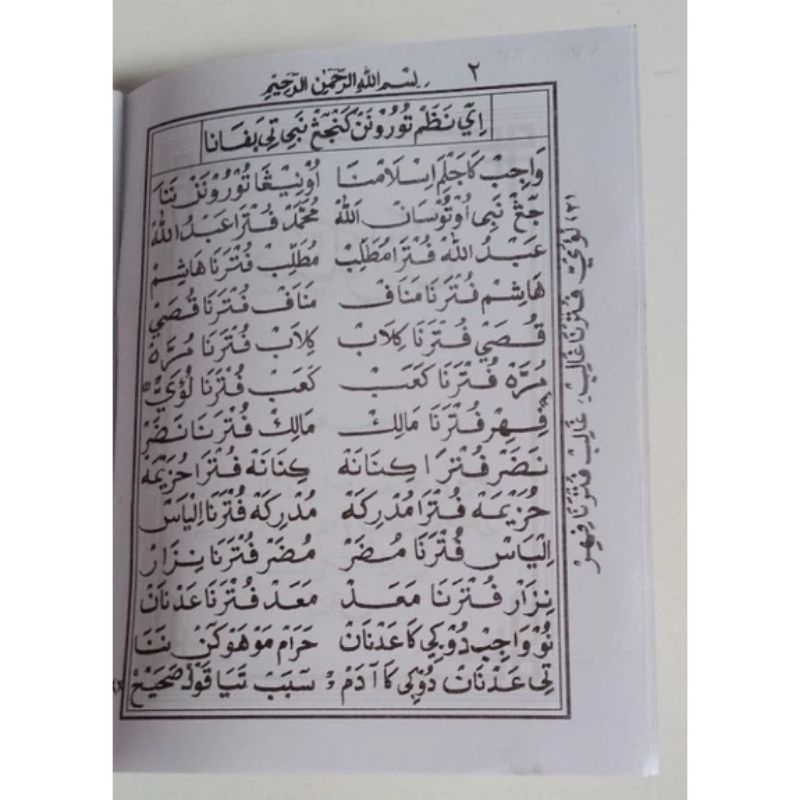 ٢
بِسْمِ اللهِ الرَّحْمٰنِ الرَّحِيْمِ
اِيَّ نَظَمْ تُوْرُوْنَنْ كَنْجَڠْ نَبِي تِي بَفَانَا
وَاجِبْ كَاجَلْمَ اِسْلَامْنَا اُوْنِيْڠَا تُوْرُوْنَنْ نَنَا
جَڠْ نَبِي اُوْتُوْسَانْ اللهْ مُحَمَّدْ فُتْرَا عَبْدُ اللهْ
عَبْدُ اللهْ فُتْرَا مُطَلِّبْ مُطَلِّبْ فُتْرَنَا هَاشِمْ
هَاشِمْ فُتْرَنَا مَنَافْ مَنَافْ فُتْرَنَا قُصَيْ
قُصَيْ فُتْرَنَا كِلَابْ كِلَابْ فُتْرَنَا مُرَّهْ
مُرَّهْ فُتْرَنَا كَعَبْ كَعَبْ فُتْرَنَا لُؤَيّْ
فِهِرْ فُتْرَنَا مَالِكْ مَالِكْ فُتْرَنَا نَضَرْ
نَضَرْ فُتْرَا كِنَانَهْ كِنَانَهْ فُتْرَا خُزَيْمَهْ
خُزَيْمَهْ فُتْرَا مُدْرِكَهْ مُدْرِكَهْ فُتْرَنَا اِلْيَاسْ
اِلْيَاسْ فُتْرَنَا مُضَرْ مُضَرْ فُتْرَنَا نِزَارْ
نِزَارْ فُتْرَنَا مَعَدْ مَعَدْ فُتْرَنَا عَدْنَانْ
نُوْ وَاجِبْ دُوْڮِي كَا عَدْنَانْ حَرَامْ مَوْهَوْكَنْ نَنَا
تِي عَدْنَانْ دُوْڮِي كَا آدَمْ سَبَبْ تَيَا قَوْلْ صَحِيْحْ
(٢) لُؤَيّْ فُتْرَنَا غَالِبْ، غَالِبْ فُتْرَنَا فِهِرْ